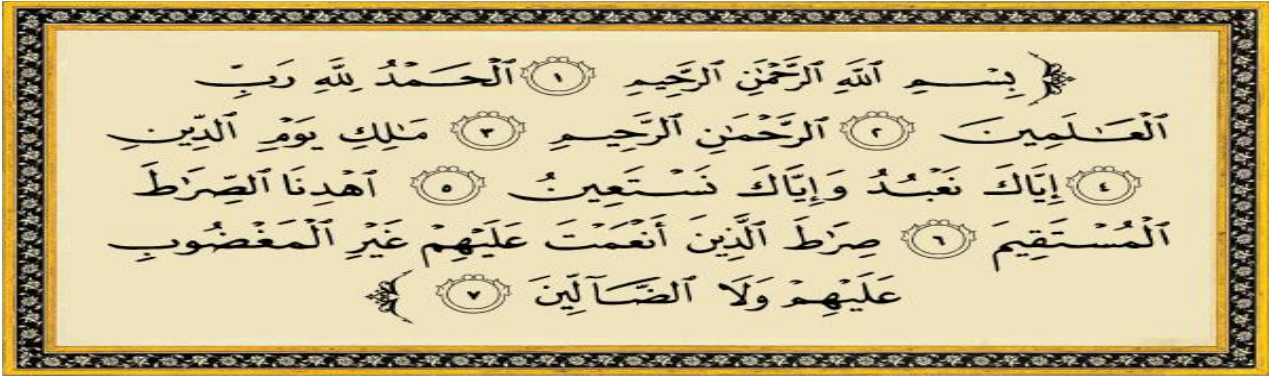 ﴿ بِسْمِ ٱللَّهِ ٱلرَّحْمَٰنِ ٱلرَّحِيمِ ١ ٱلْحَمْدُ لِلَّهِ رَبِّ
ٱلْعَٰلَمِينَ ٢ ٱلرَّحْمَٰنِ ٱلرَّحِيمِ ٣ مَٰلِكِ يَوْمِ ٱلدِّينِ
٤ إِيَّاكَ نَعْبُدُ وَإِيَّاكَ نَسْتَعِينُ ٥ ٱهْدِنَا ٱلصِّرَٰطَ
ٱلْمُسْتَقِيمَ ٦ صِرَٰطَ ٱلَّذِينَ أَنْعَمْتَ عَلَيْهِمْ غَيْرِ ٱلْمَغْضُوبِ
عَلَيْهِمْ وَلَا ٱلضَّآلِّينَ ٧ ﴾